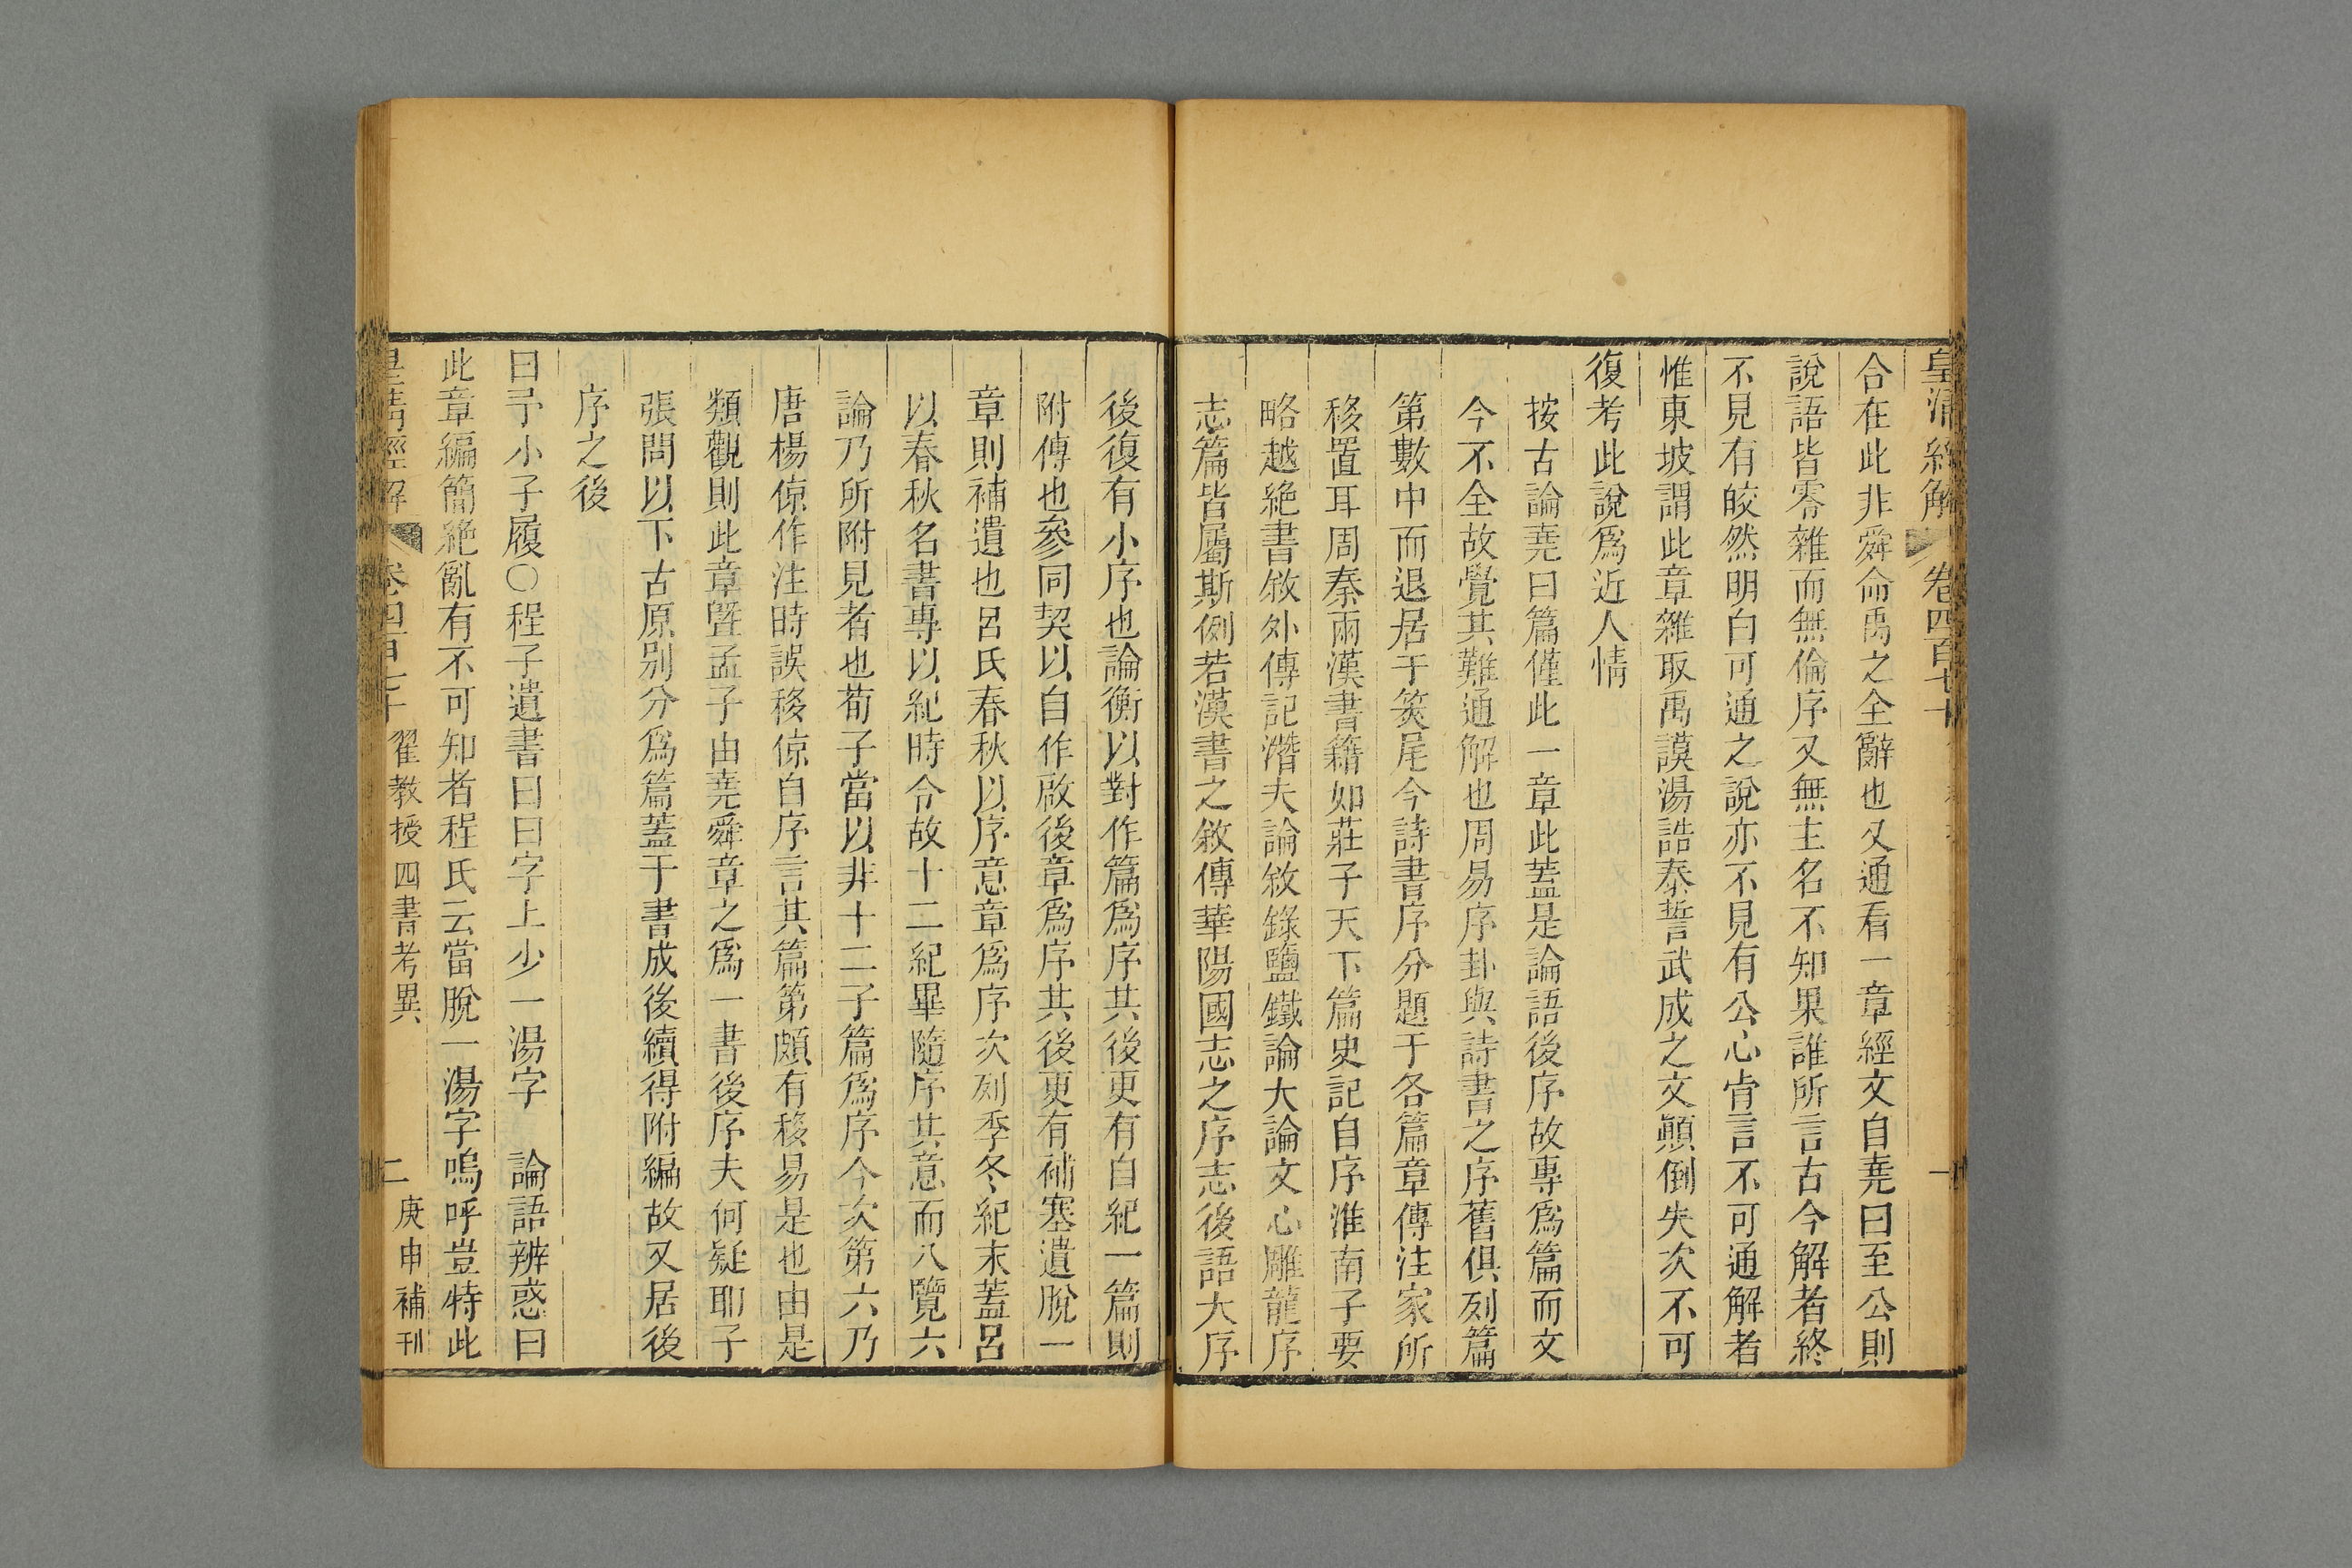 皇清經解 卷四百七十 一
合在此非舜命禹之全辭也又通看一章經文自堯曰至公則
說語皆零雜而無倫序又無主名不知果誰所言古今解者終
不見有皎然明白可通之說亦不見有公心肯言不可通解者
惟東坡謂此章雜取禹謨湯誥泰誓武成之文顛倒失次不可
復考此說爲近人情
按古論堯曰篇僅此一章此蓋是論語後序故專爲篇而文
今不全故覺其難通解也周易序卦與詩書之序舊俱列篇
第數中而退居于筴尾今詩書序分題于各篇章傳注家所
移置耳周秦兩漢書籍如莊子天下篇史記自序淮南子要
略越絕書敘外傳記潛夫論敘錄鹽鐵論大論文心雕龍序
志篇皆屬斯例若漢書之敘傳華陽國志之序志後語大序
後復有小序也論衡以對作篇爲序其後更有自紀一篇則
附傳也參同契以自作啟後章爲序其後更有補塞遺脫一
章則補遺也呂氏春秋以序意章爲序次列季冬紀末蓋呂
以春秋名書專以紀時令故十二紀畢隨序其意而八覽六
論乃所附見者也荀子當以非十二子篇爲序今次第六乃
唐楊倞作注時誤移倞自序言其篇第頗有移易是也由是
類觀則此章曁孟子由堯舜章之爲一書後序夫何疑耶子
張問以下古原别分爲篇蓋于書成後續得附編故又居後
序之後
曰予小子履〇程子遺書曰曰字上少一湯字 論語辨惑曰
此章編簡絕亂有不可知者程氏云當脫一湯字嗚呼豈特此
皇清經解 卷四百七十 翟教授四書考異 二 庚申補刊